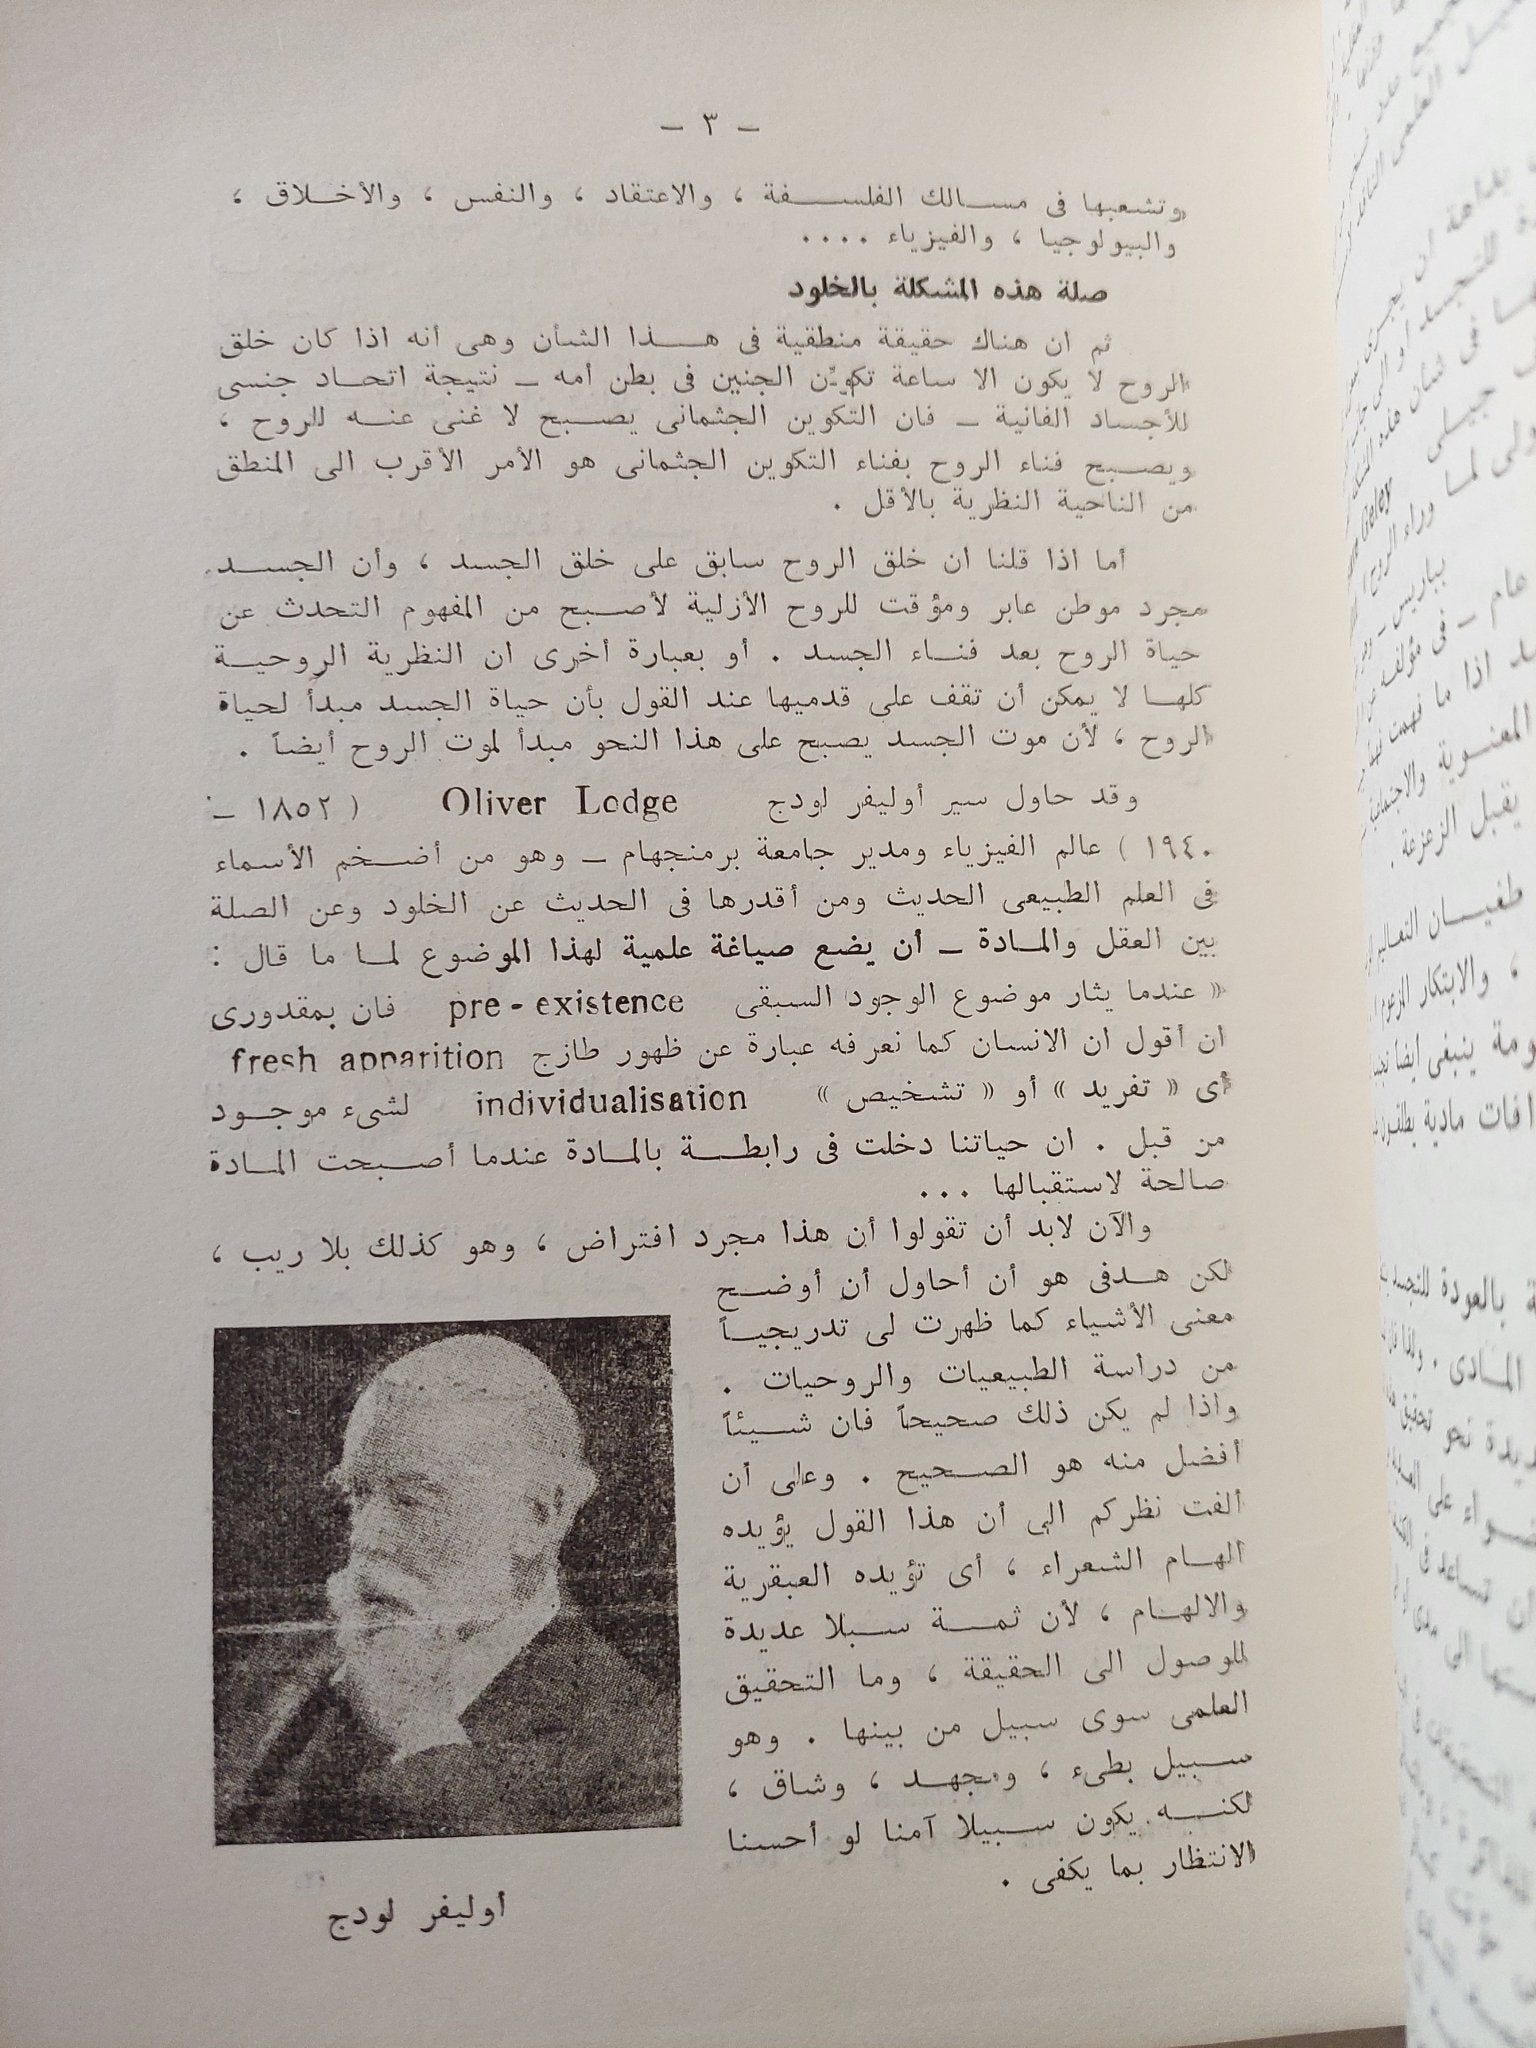 — ٣ —
وتشعبها فى مسالك الفلسفة ، والاعتقاد ، والنفس ، والأخلاق ،
والبيولوجيا ، والفيزياء ....
صلة هذه المشكلة بالخلود
ثم ان هناك حقيقة منطقية فى هذا الشأن وهى أنه اذا كان خلق
الروح لا يكون الا ساعة تكوين الجنين فى بطن أمه — نتيجة اتحاد جنسى
للأجساد الفانية — فان التكوين الجثمانى يصبح لا غنى عنه للروح ،
ويصبح فناء الروح بفناء التكوين الجثمانى هو الأمر الأقرب الى المنطق
من الناحية النظرية بالأقل .
أما اذا قلنا ان خلق الروح سابق على خلق الجسد ، وأن الجسد
مجرد موطن عابر ومؤقت للروح الأزلية لأصبح من المفهوم التحدث عن
حياة الروح بعد فناء الجسد . أو بعبارة أخرى ان النظرية الروحية
كلها لا يمكن أن تقف على قدميها عند القول بأن حياة الجسد مبدأ لحياة
الروح ، لأن موت الجسد يصبح على هذا النحو مبدأ لموت الروح أيضاً .
وقد حاول سير أوليفر لودج Oliver Lodge ( ١٨٥٢ —
١٩٤٠ ) عالم الفيزياء ومدير جامعة برمنجهام — وهو من أضخم الأسماء
فى العلم الطبيعى الحديث ومن أقدرها فى الحديث عن الخلود وعن الصلة
بين العقل والمادة — أن يضع صياغة علمية لهذا الموضوع لما ما قال :
« عندما يثار موضوع الوجود السبقى pre-existence فان بمقدورى
ان أقول ان الانسان كما نعرفه عبارة عن ظهور طازج fresh apparition
أى « تفريد » أو « تشخيص » individualisation لشىء موجود
من قبل . ان حياتنا دخلت فى رابطة بالمادة عندما أصبحت المادة
صالحة لاستقبالها ...
والآن لابد أن تقولوا أن هذا مجرد افتراض ، وهو كذلك بلا ريب ،
لكن هدفى هو أن أحاول أن أوضح
معنى الأشياء كما ظهرت لى تدريجياً
من دراسة الطبيعيات والروحيات .
واذا لم يكن ذلك صحيحاً فان شيئاً
أفضل منه هو الصحيح . وعلى أن
ألفت نظركم الى أن هذا القول يؤيده
الهام الشعراء ، أى تؤيده العبقرية
والالهام ، لأن ثمة سبلا عديدة
للوصول الى الحقيقة ، وما التحقيق
العلمى سوى سبيل من بينها . وهو
سبيل بطىء ، ومجهد ، وشاق ،
لكنه يكون سبيلا آمنا لو أحسنا
الانتظار بما يكفى .
أوليفر لودج